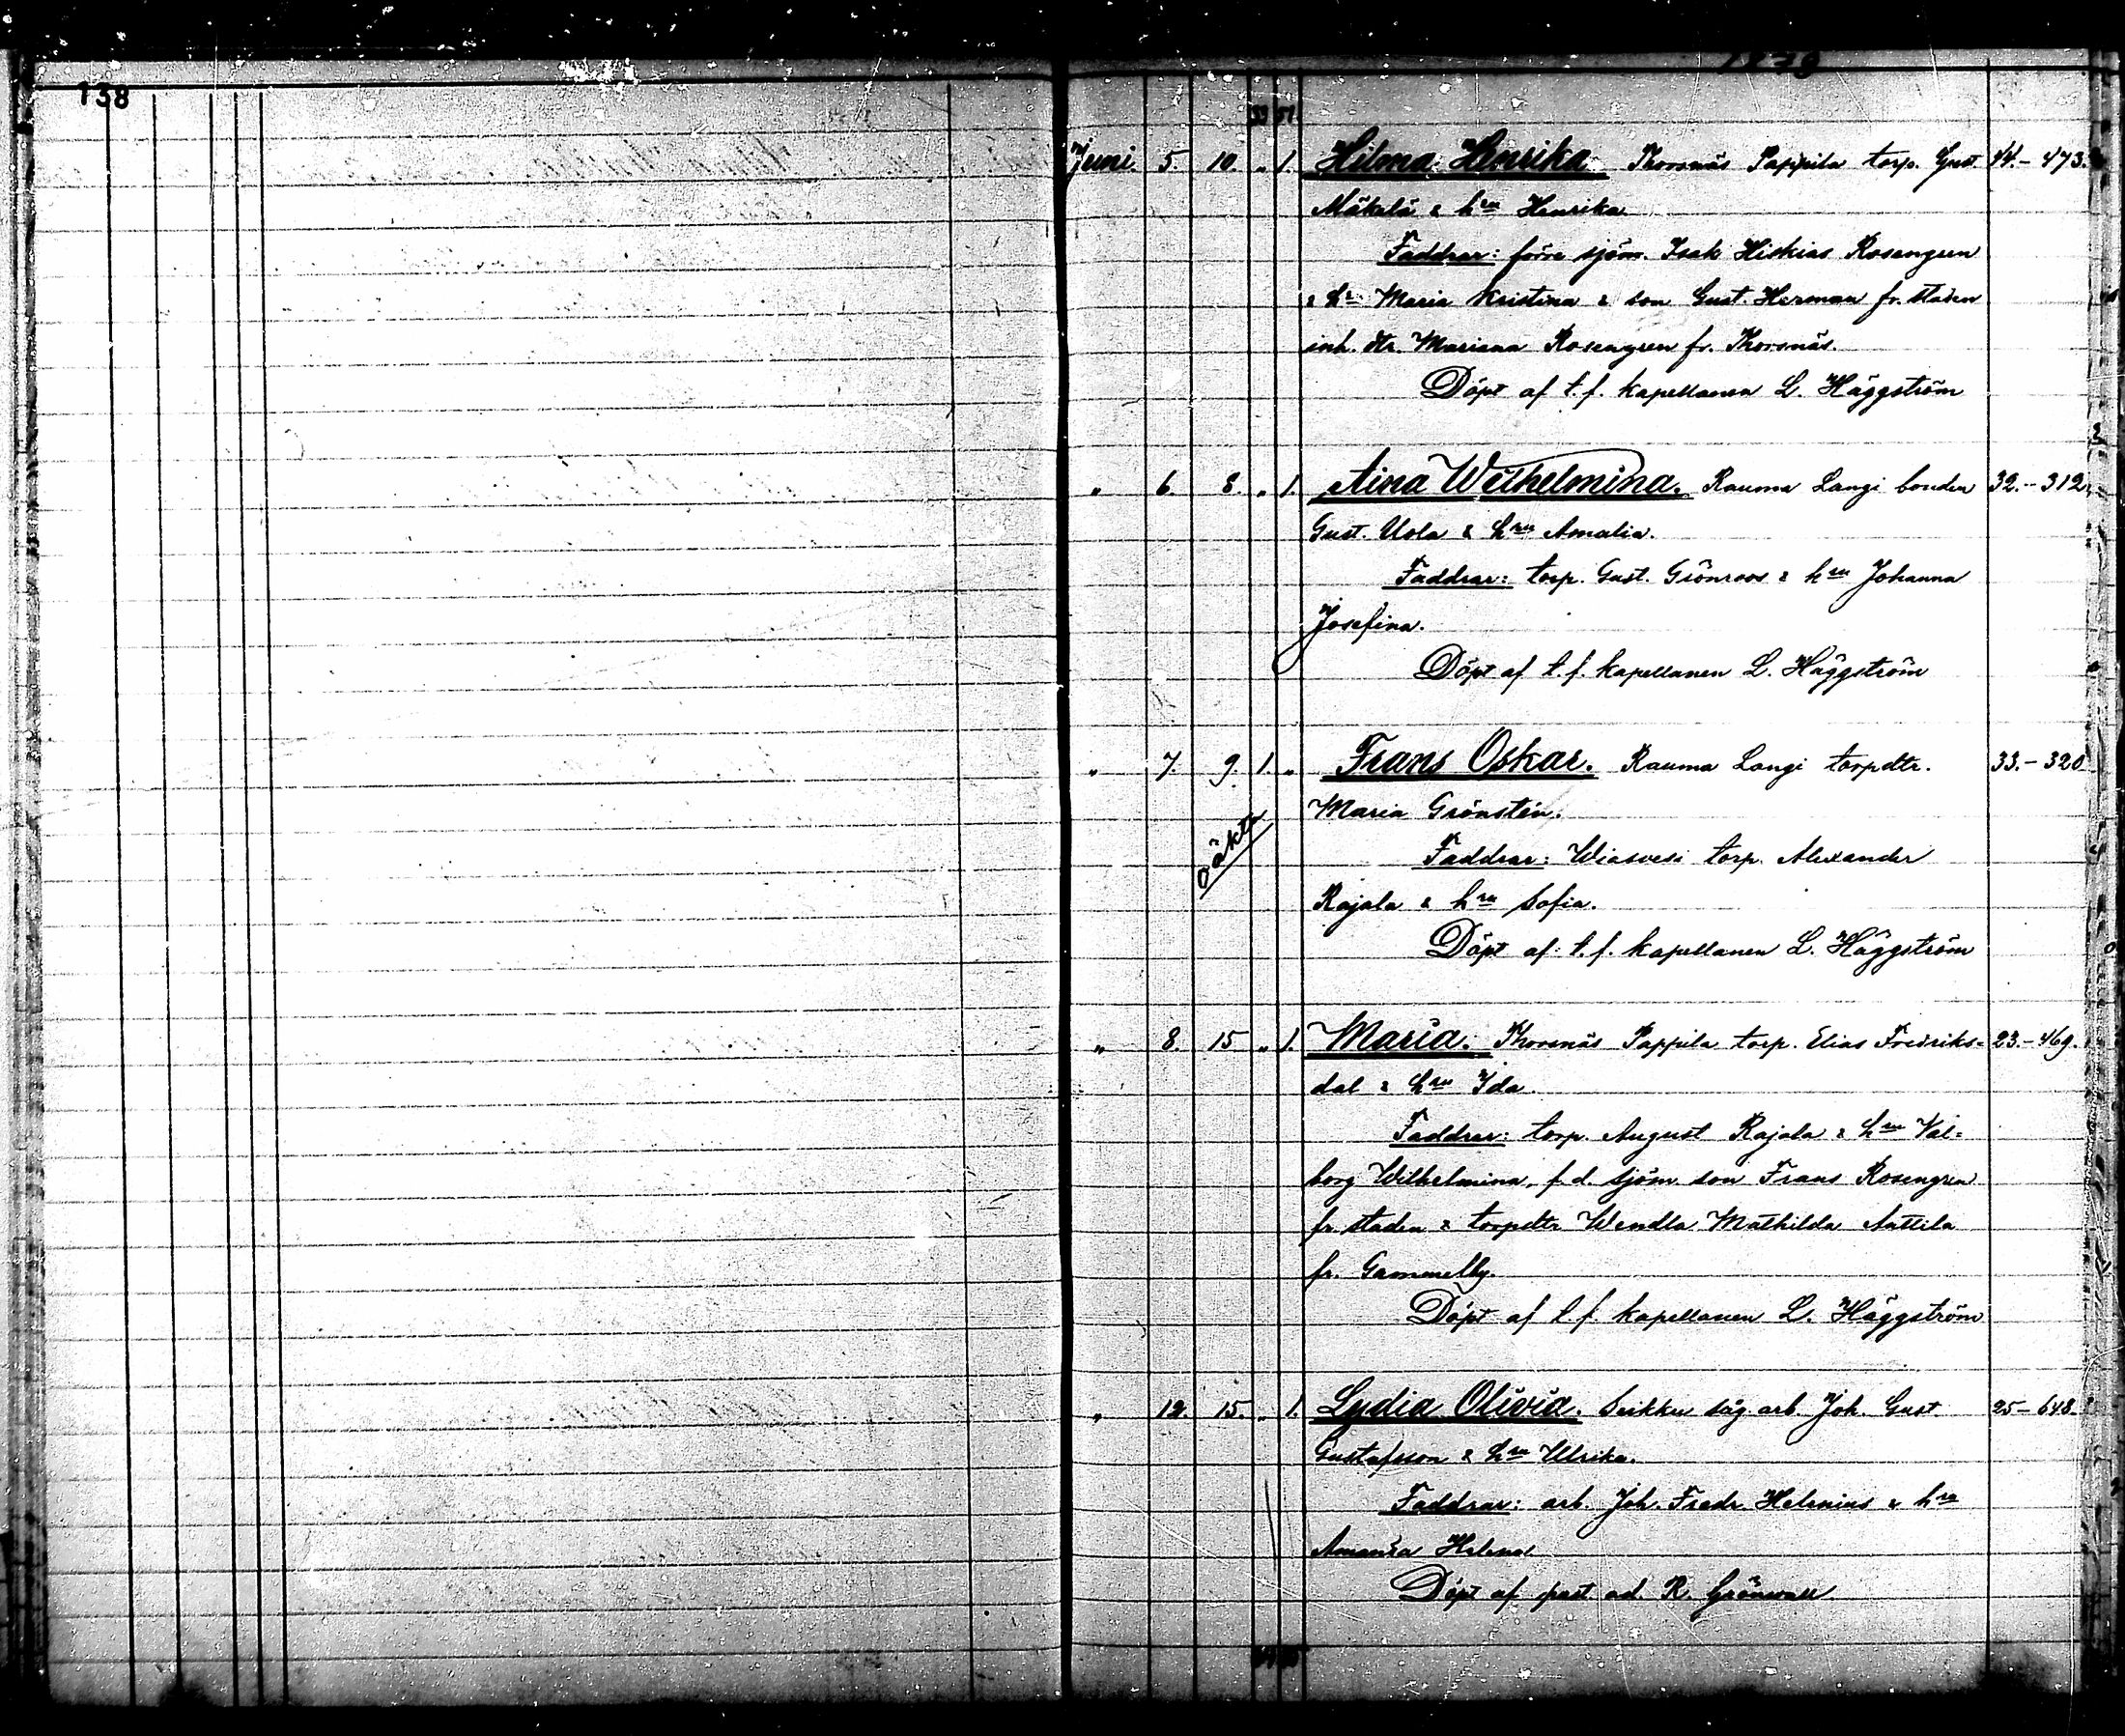 138
1879
Juni 5. 10. „ 1. Hilma Henrika Thorsnäs Pappila torp. Gust. 44.-473.
Mäkelä & hru Henrika
Faddrar: förre sjöm. Isak Hiskias Rosengren
& hr Maria Kristina & son Gust. Herman fr. staden
inh. dtr. Mariana Rosengren fr. Thorsnäs.
Döpt af t.f. kapellanen L. Häggström
„ 6. 8. „ 1. Aina Wilhelmina. Rauma Langi bonden 32.-312.
Gust. Uola & hru Amalia.
Faddrar: torp. Gust. Grönroos & hru Johanna
Josefina.
Döpt af t.f. kapellanen L. Häggström
„ 7. 9. 1. „ Frans Oskar. Rauma Langi torpdtr. 33.-320
Maria Grönstén.
oäkta
Faddrar: Wiasvesi torp. Alexander
Rajala & hru Sofia.
Döpt af t.f. kapellanen L. Häggström
„ 8. 15 „ 1. Maria. Thorsnäs Pappila torp. Elias Fredriks= 23.-469.
dal & hru Ida.
Faddrar: torp. August Rajala & hru Val=
borg Wilhelmina, f.d. sjöm. son Frans Rosengren
fr. staden & torpdtr Wendla Mathilda Anttila
fr. Gammelby.
Döpt af t.f. kapellanen L. Häggström
„ 12. 15. „ 1. Lydia Olivia. Seikku såg. arb. Joh. Gust. 25-648.
Gustafsson & hru Ulrika.
Faddrar: arb. Joh. Fredr. Helenius & hru
Amanda Helena
Döpt af past. ad. R. Grönvall